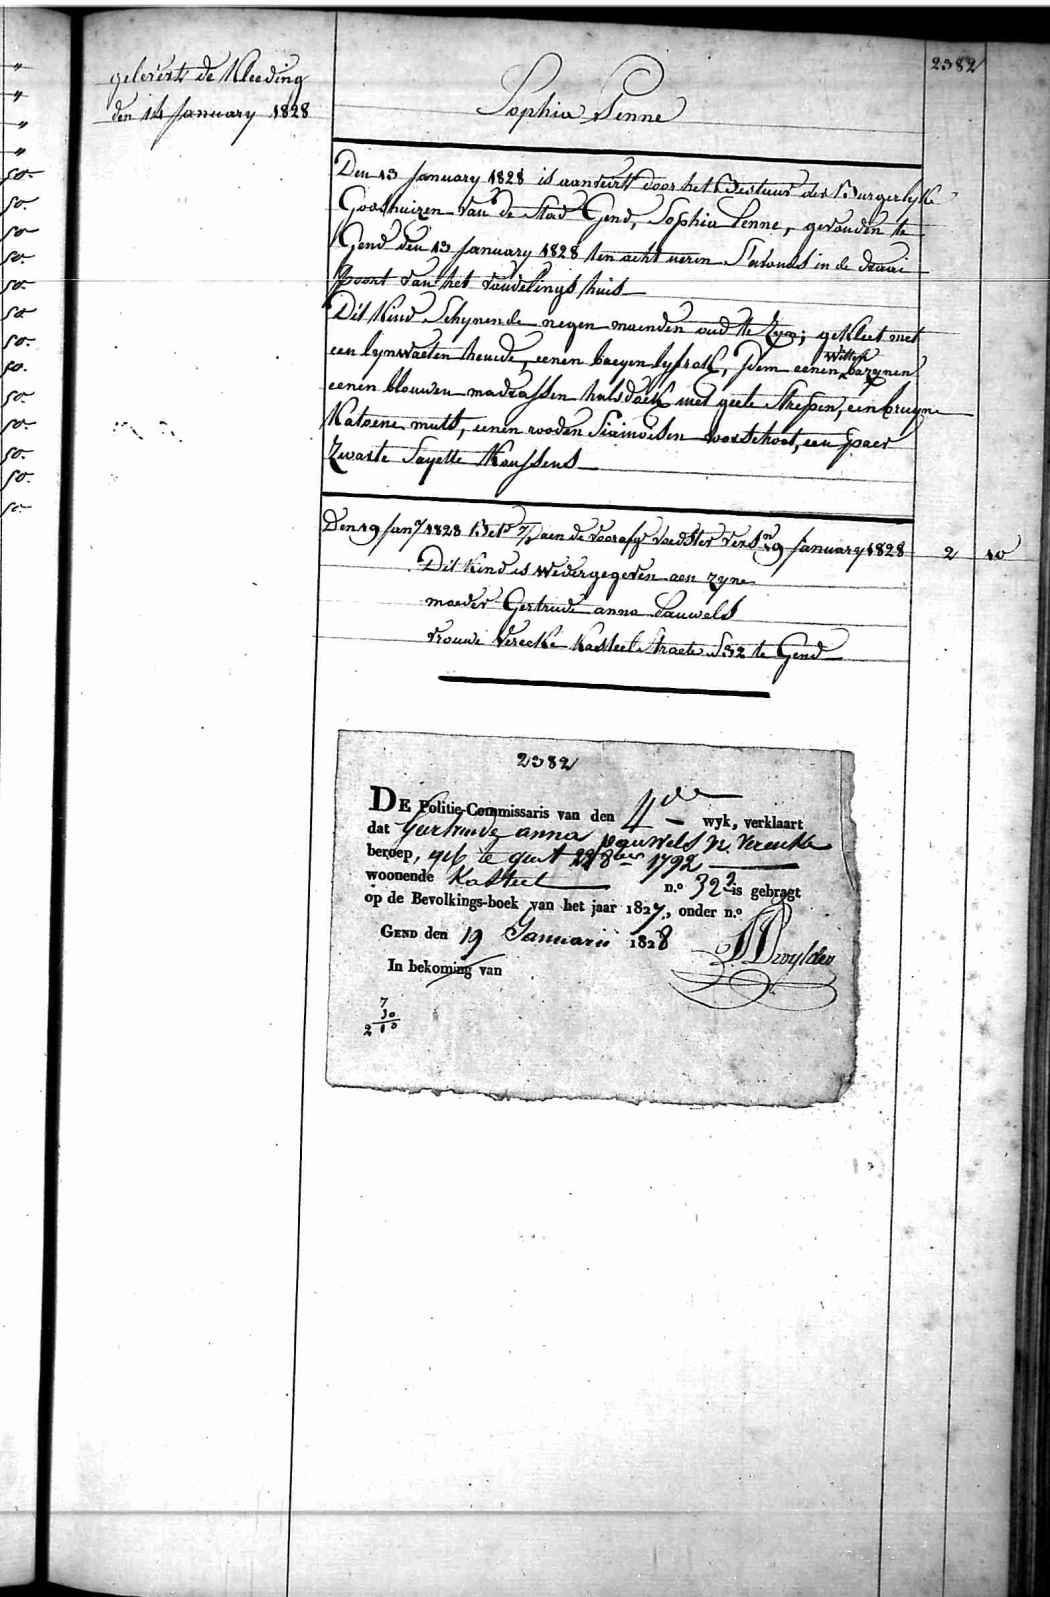 2382
geleverts de Kleeding
den 14 January 1828
Sophia Penne
Den 13 January 1828 is aanveirt door het Bestuur der Burgerlyke
Goodshuizen van de Stad Gend, Sophia Penne, gevonden te
Gend den 13 January 1828 ten acht ueren S'avonds in de draai
Poort van het vondelings huis
Dit Kind Schynende negen maenden oud te Zyn; gekleet met
een lynwaeten hemde, eenen baeyen lyfrok, Idem eenen witten bazynen
eenen blouwen madrassen halsdoek met geele Strepen, een bruyne
Katoene muts, eenen rooden Siamoisen voorschoot, een paer
Zwarte Sayette Koussens
Den 19 Jany 1828 Bet. 7/ aen de voorafge voedster vers. 19 January 1828 2 10
Dit Kind is wedergegeven aen zyne
moeder Gertrude anna Pauwels
vrouwe Vereecke Kasteel Straete S32 te Gend
2382
DE Politie-Commissaris van den 4de wyk, verklaart
dat Geertruide anna pauwels vr. Vereecke
beroep, geb te gent 22 8ber 1792
woonende Kasteel n.o 32 2 is gebragt
op de Bevolkings-boek van het jaar 1827, onder n.o
GEND den 19 Januarii 1828
In bekoming van
7
30
2 10
50.
50.
50
50.
50.
50
50.
50.
50
50.
50
50.
50